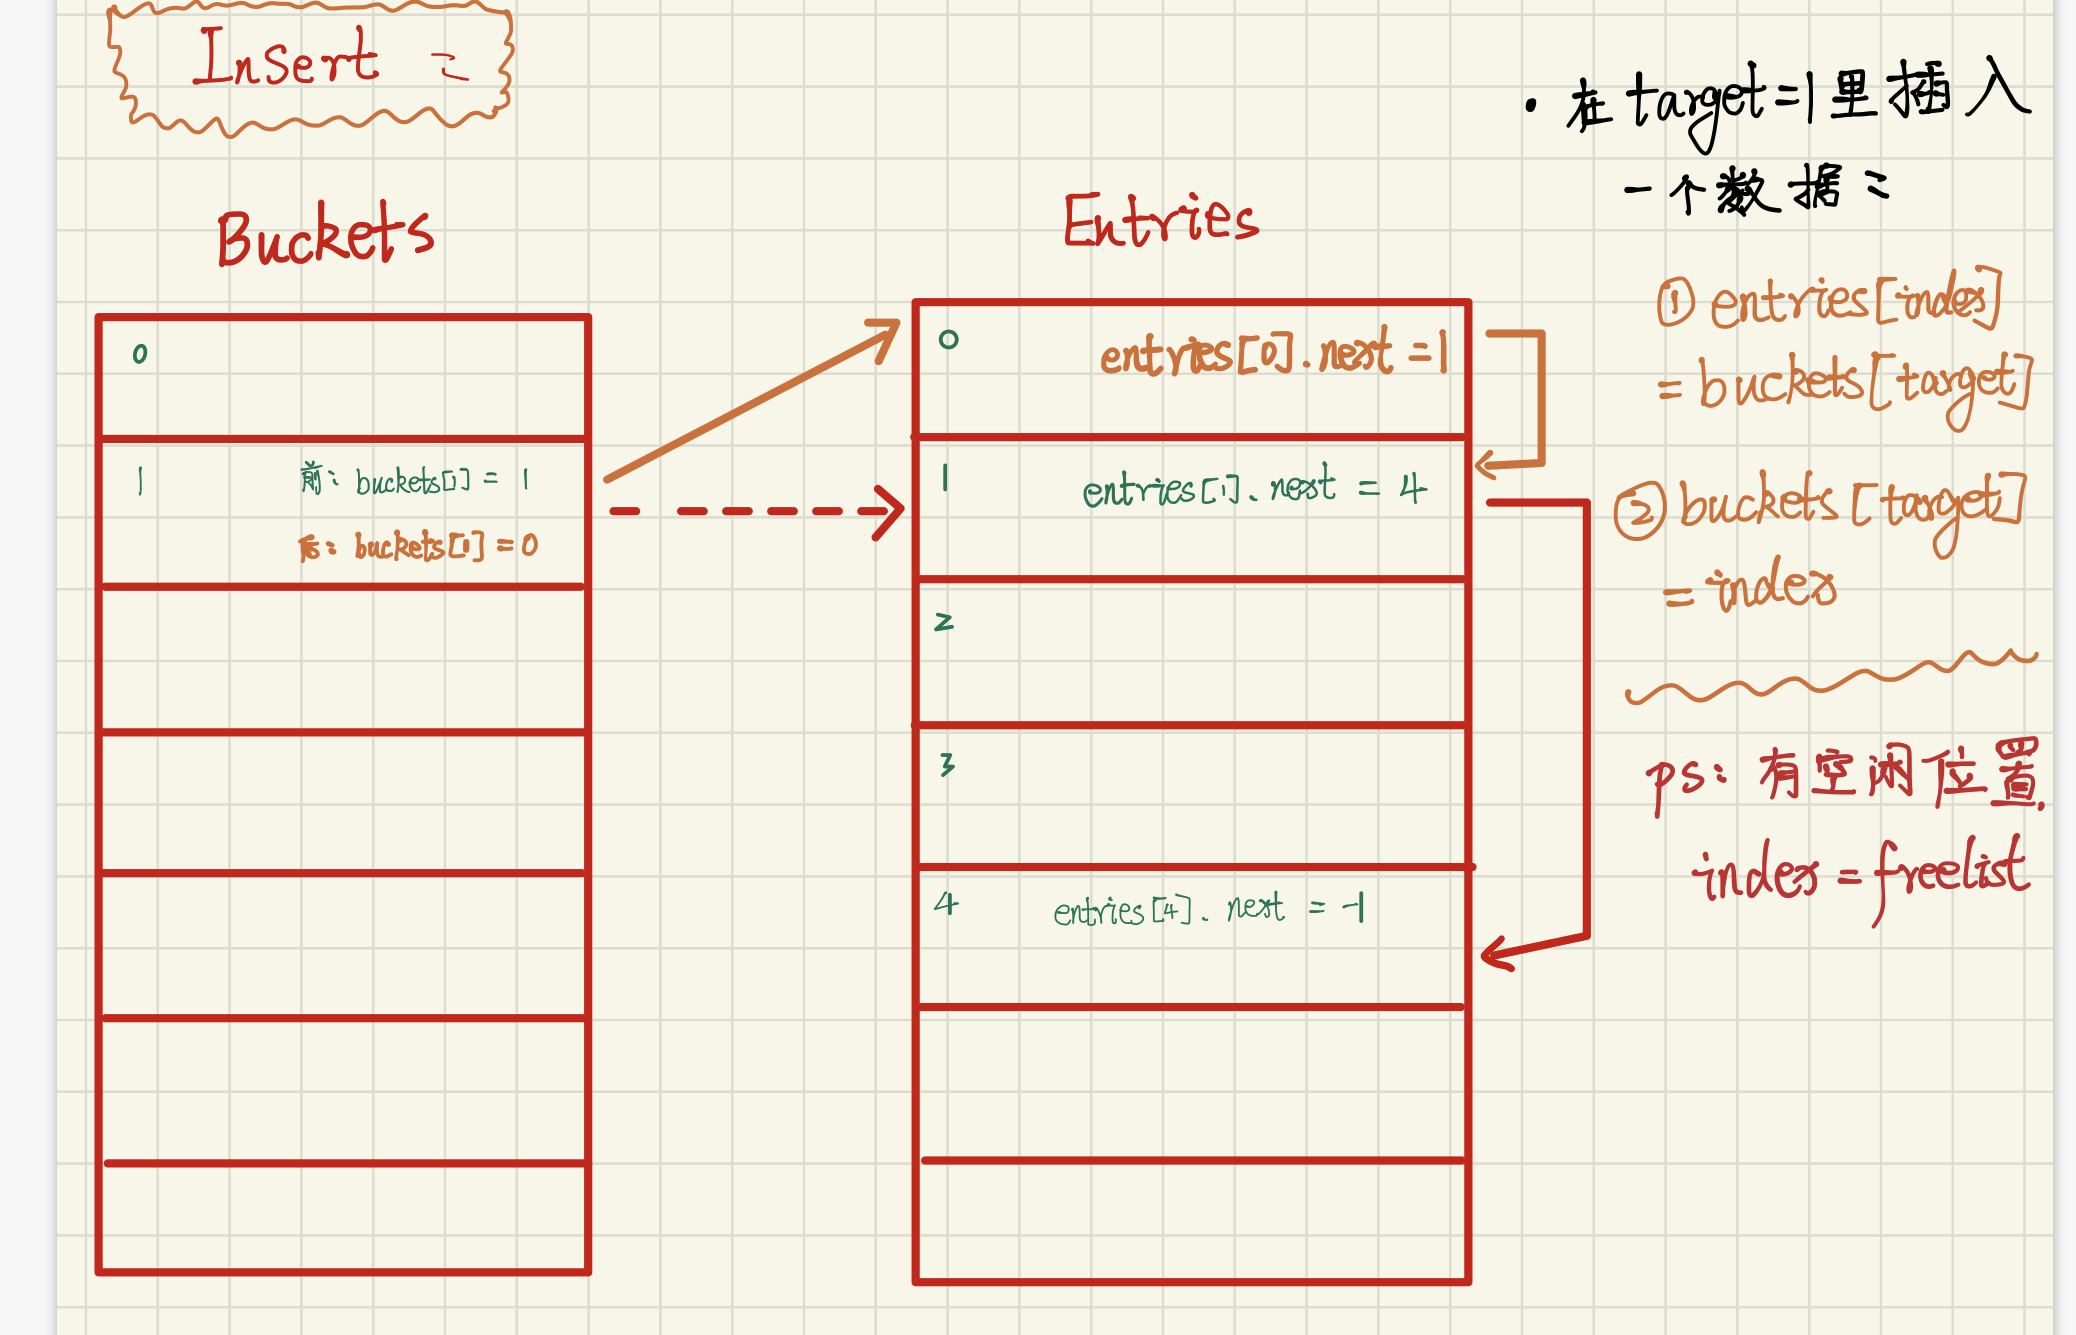 Insert :
Buckets
0
1
前: buckets[1] = 1
后: buckets[1] = 0
Entries
0
entries[0].next = 1
1
entries[1].next = 4
2
3
4
entries[4].next = -1
· 在target=1里插入
一个数据:
① entries[index]
= buckets[target]
② buckets[target]
= index
ps: 有空闲位置,
index = freelist